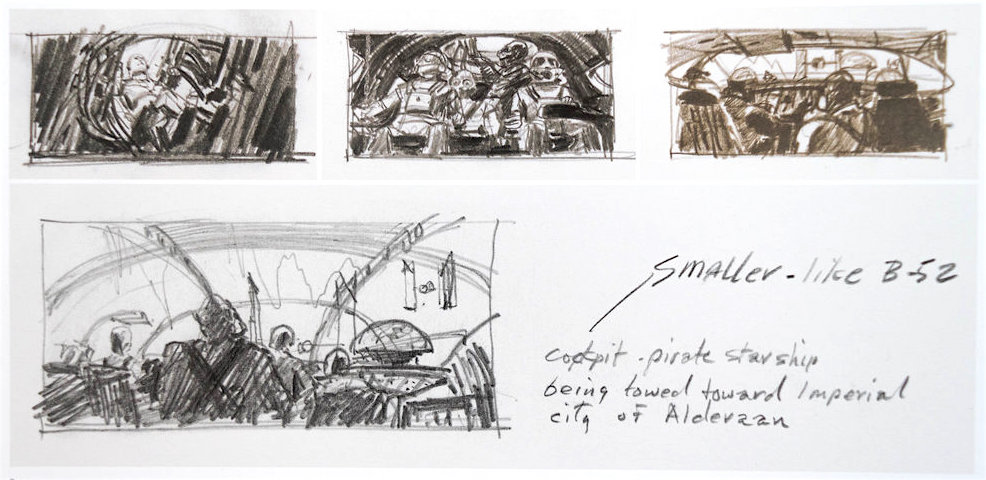 SMALLER - like B-52
cockpit - pirate starship
being towed toward Imperial
city of Alderaan